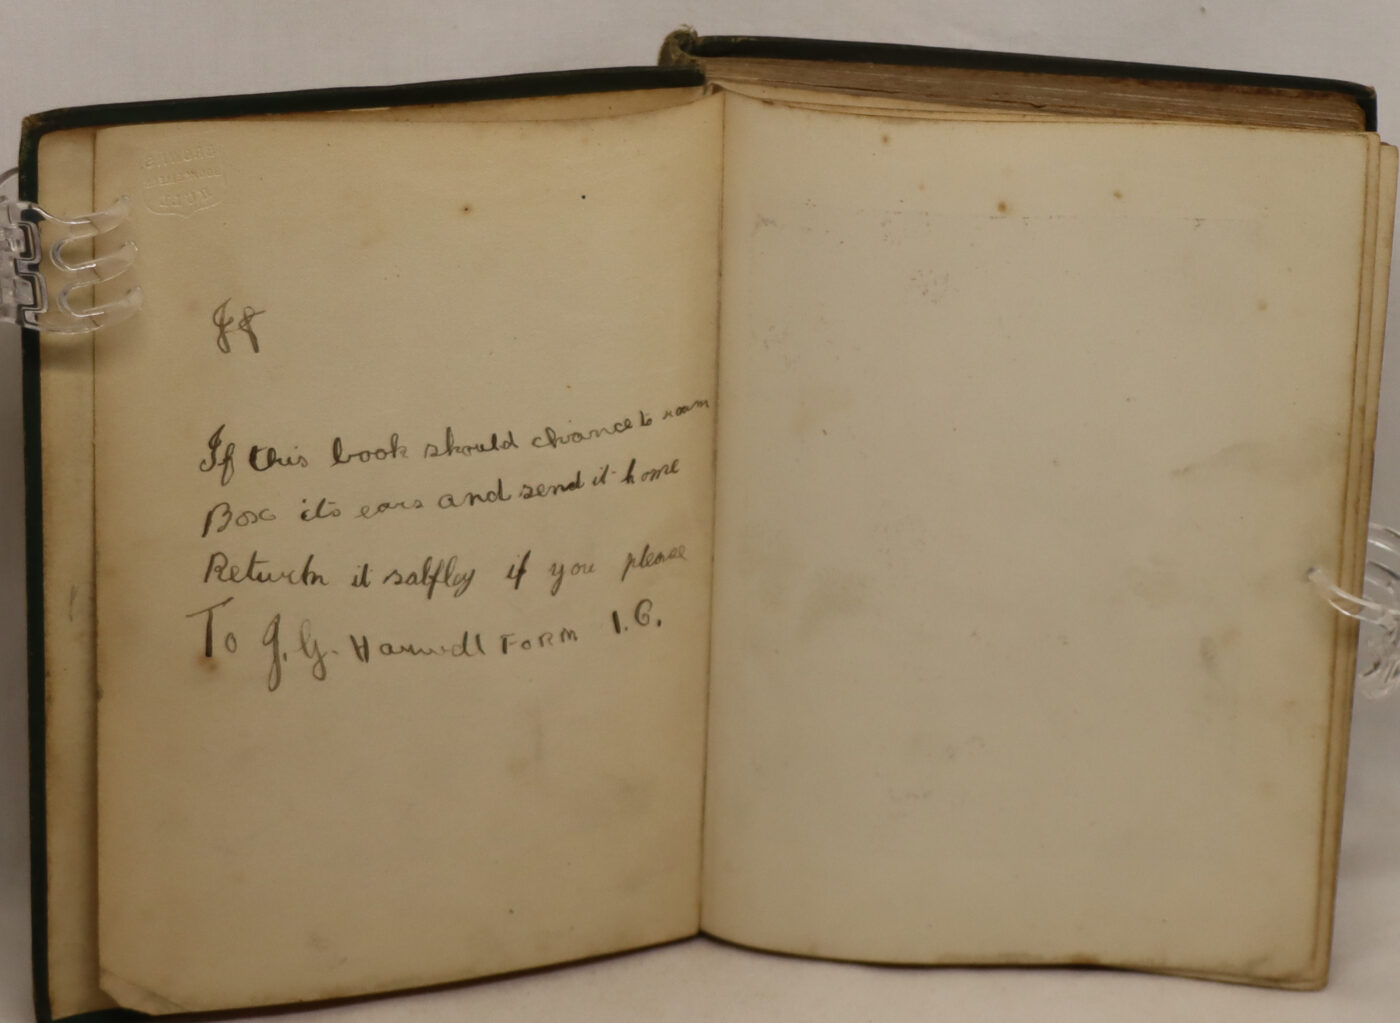 If
If this book should chance to roam
Box its ears and send it home
Return it salfley if you please
To J. G. Harwell FORM 1.C.